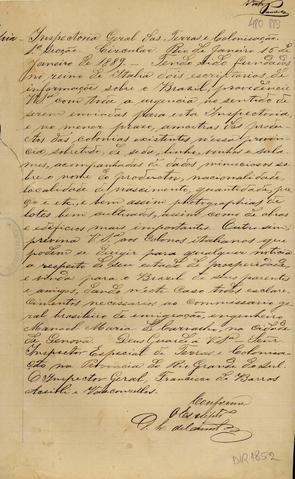 Inspectoria Geral das Terras e Colonisação.
1ª Secção. Circular. Rio de Janeiro 15 de
Janeiro de 1889. Tendo sido fundados
no reino de Italia dois escriptorios de
informações sobre o Brazil, providencie
Vª Sª com toda a urgencia no sentido de
serem enviados para esta Inspectoria,
e no menor prazo, amostras dos produc
tos das colonias existentes nessa provin
cia, sobretudo, de seda, linho, vinho e
acompanhadas de dados minuciosos so
bre o nome do productor, nacionalidade,
localidade do nascimento, quantidade, pre
ço e etc, e bem assim photographias de
lotes bem cultivados, assim como de obras
e edificios mais importantes. Outro sim,
previna Vª Sª aos colonos italianos que
podem se dirigir para qualquer noticia
a respeito do seu estado de
e vinda para o Brazil de seus parentes
e amigos, dando neste caso todos esclare
cimentos necessarios ao Commissario ge
ral brasileiro de emigração, engenheiro
Manoel Maria de Carvalho, na cidade
de Genova. Deus Guarde a Vª Sª Snr
Inspector Especial de Terras e Colonisa
ção na Provincia do Rio Grande do Sul.
O Inspector Geral, Francisco de Barros
Accioli de Vasconcellos.
Conforme
480 893
DIR1852